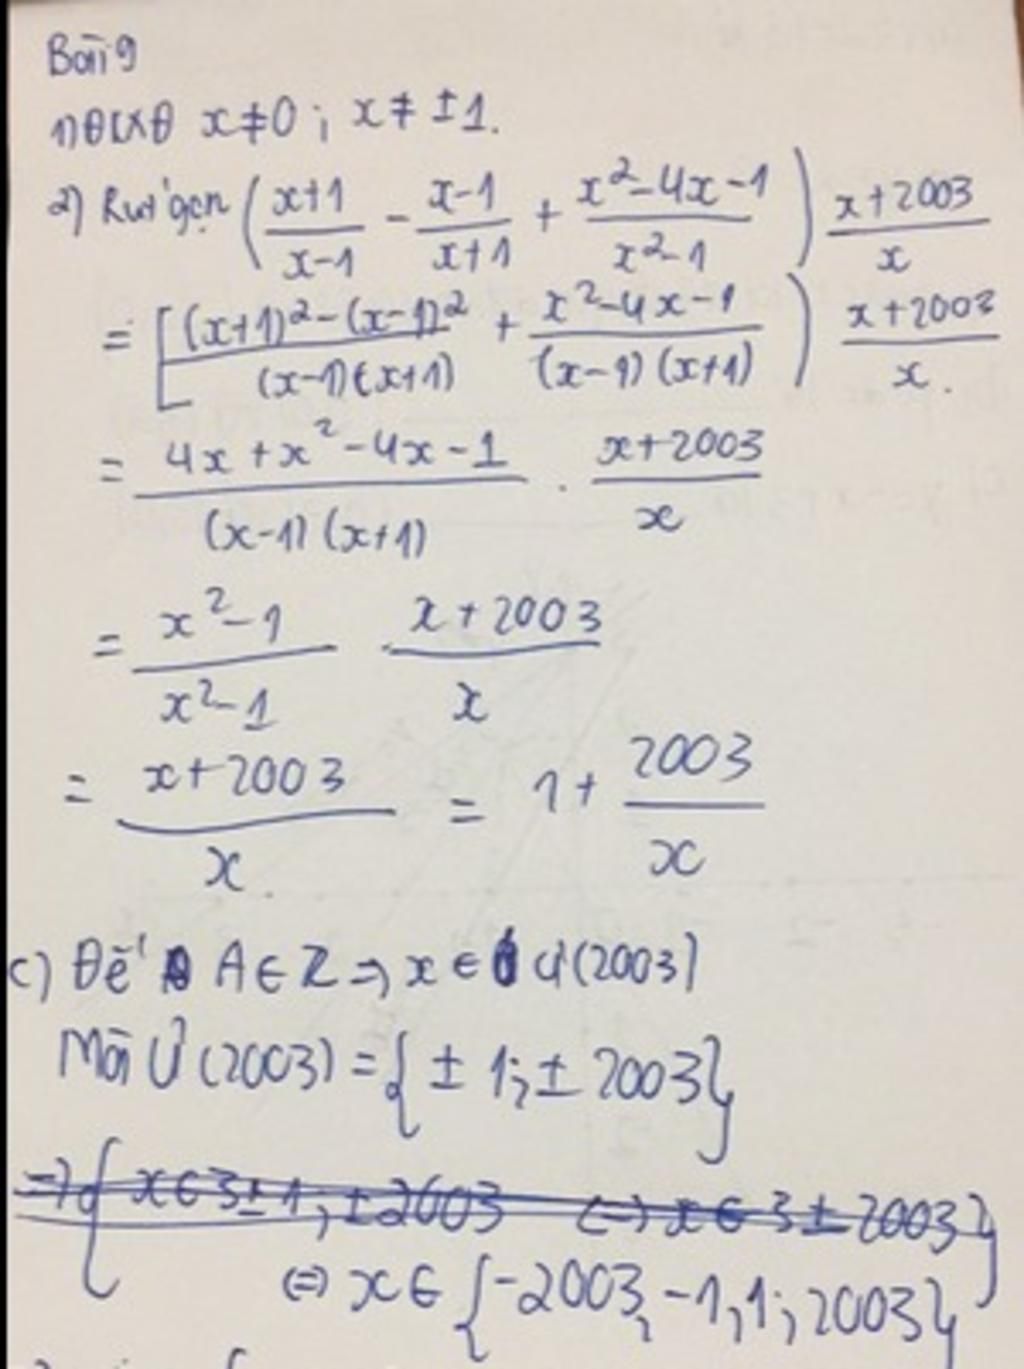 Bài 9
1) ĐKXĐ x ≠ 0 ; x ≠ ± 1.
2) Rút gọn ( (x+1)/(x-1) - (x-1)/(x+1) + (x²-4x-1)/(x²-1) ) (x+2003)/x
= [ ((x+1)²-(x-1)²)/((x-1)(x+1)) + (x²-4x-1)/((x-1)(x+1)) ) (x+2003)/x .
= (4x+x²-4x-1)/((x-1)(x+1)) . (x+2003)/x
= (x²-1)/(x²-1) . (x+2003)/x
= (x+2003)/x = 1 + 2003/x
c) Để A ∈ Z => x ∈ Ư(2003)
Mà Ư(2003) = { ± 1; ± 2003}
<=> x ∈ {-2003, -1, 1; 2003}